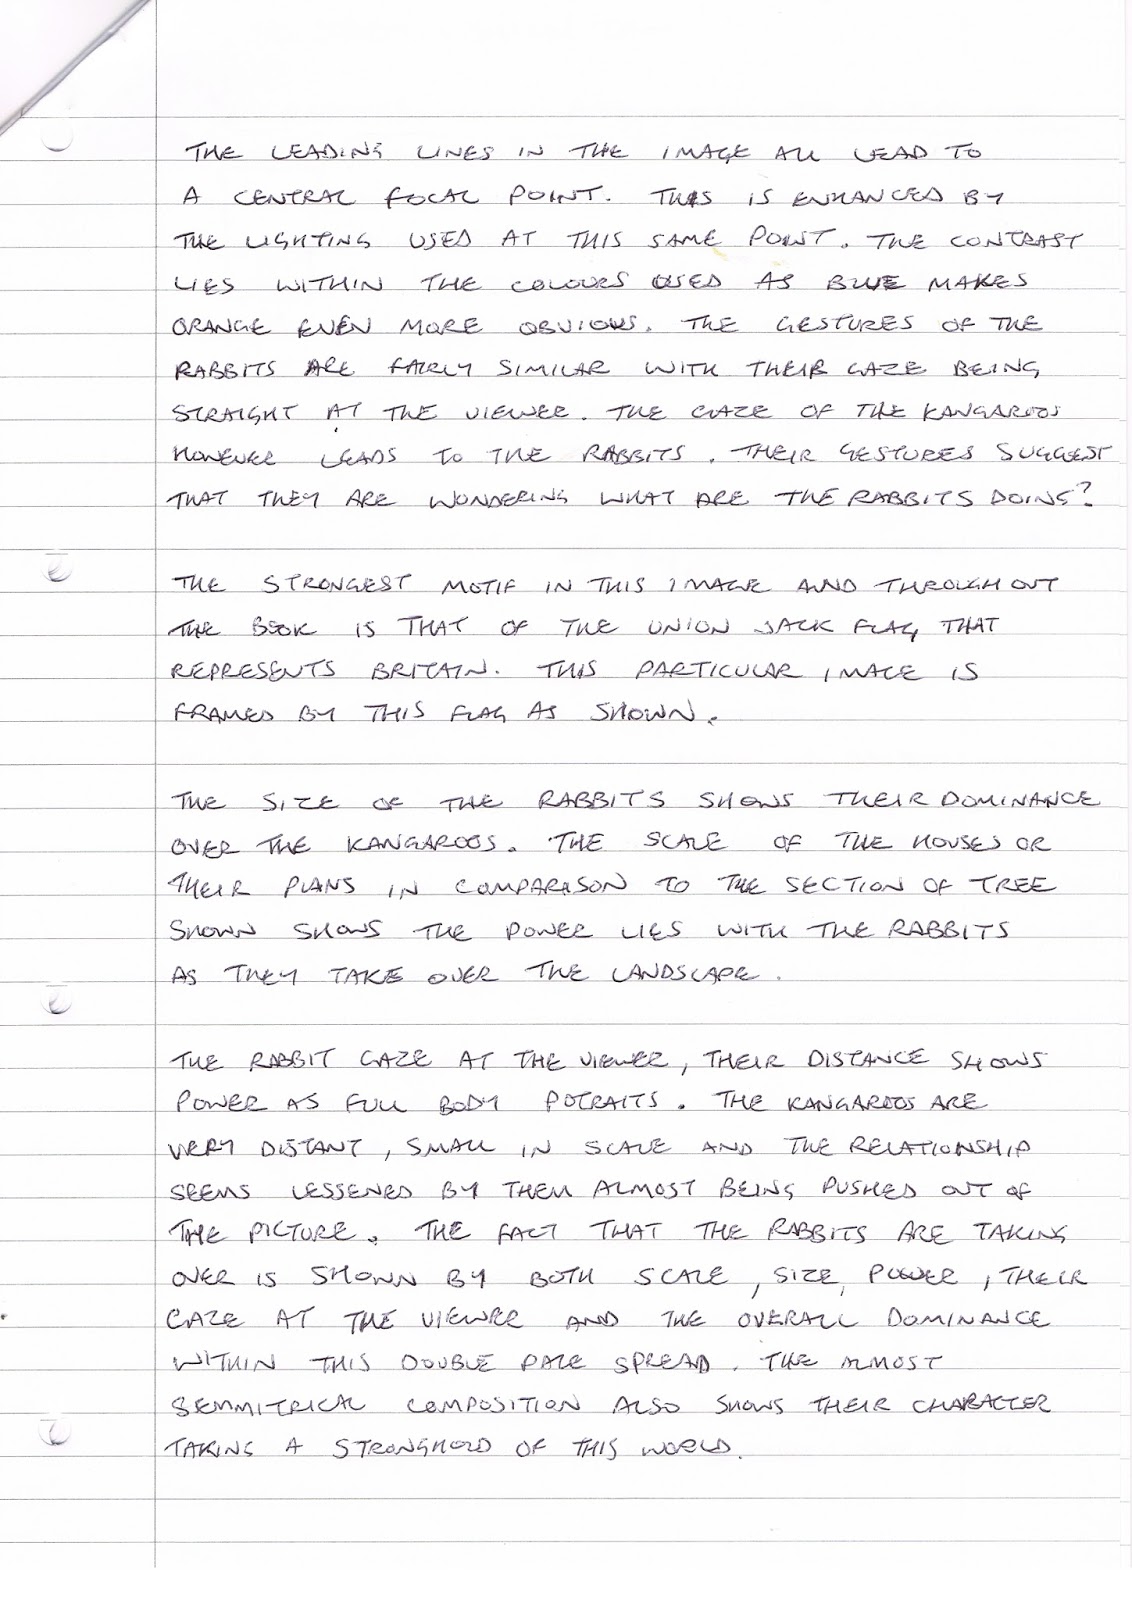 THE LEADING LINES IN THE IMAGE ALL LEAD TO
A CENTRAL FOCAL POINT. THIS IS ENHANCED BY
THE LIGHTING USED AT THIS SAME POINT. THE CONTRAST
LIES WITHIN THE COLOURS USED AS BLUE MAKES
ORANGE EVEN MORE OBVIOUS. THE GESTURES OF THE
RABBITS ARE FAIRLY SIMILAR WITH THEIR GAZE BEING
STRAIGHT AT THE VIEWER. THE GAZE OF THE KANGAROOS
HOWEVER LEADS TO THE RABBITS. THEIR GESTURES SUGGEST
THAT THEY ARE WONDERING WHAT ARE THE RABBITS DOING?
THE STRONGEST MOTIF IN THIS IMAGE AND THROUGHOUT
THE BOOK IS THAT OF THE UNION JACK FLAG THAT
REPRESENTS BRITAIN. THIS PARTICULAR IMAGE IS
FRAMED BY THIS FLAG AS SHOWN.
THE SIZE OF THE RABBITS SHOWS THEIR DOMINANCE
OVER THE KANGAROOS. THE SCALE OF THE HOUSES OR
THEIR PLANS IN COMPARISON TO THE SECTION OF TREE
SHOWN SHOWS THE POWER LIES WITH THE RABBITS
AS THEY TAKE OVER THE LANDSCAPE.
THE RABBIT GAZE AT THE VIEWER, THEIR DISTANCE SHOWS
POWER AS FULL BODY POTRAITS. THE KANGAROOS ARE
VERY DISTANT, SMALL IN SCALE AND THE RELATIONSHIP
SEEMS LESSENED BY THEM ALMOST BEING PUSHED OUT OF
THE PICTURE. THE FACT THAT THE RABBITS ARE TAKING
OVER IS SHOWN BY BOTH SCALE, SIZE, POWER, THEIR
GAZE AT THE VIEWER AND THE OVERALL DOMINANCE
WITHIN THIS DOUBLE PAGE SPREAD. THE ALMOST
SEMMITRICAL COMPOSITION ALSO SHOWS THEIR CHARACTER
TAKING A STRONGHOLD OF THIS WORLD.